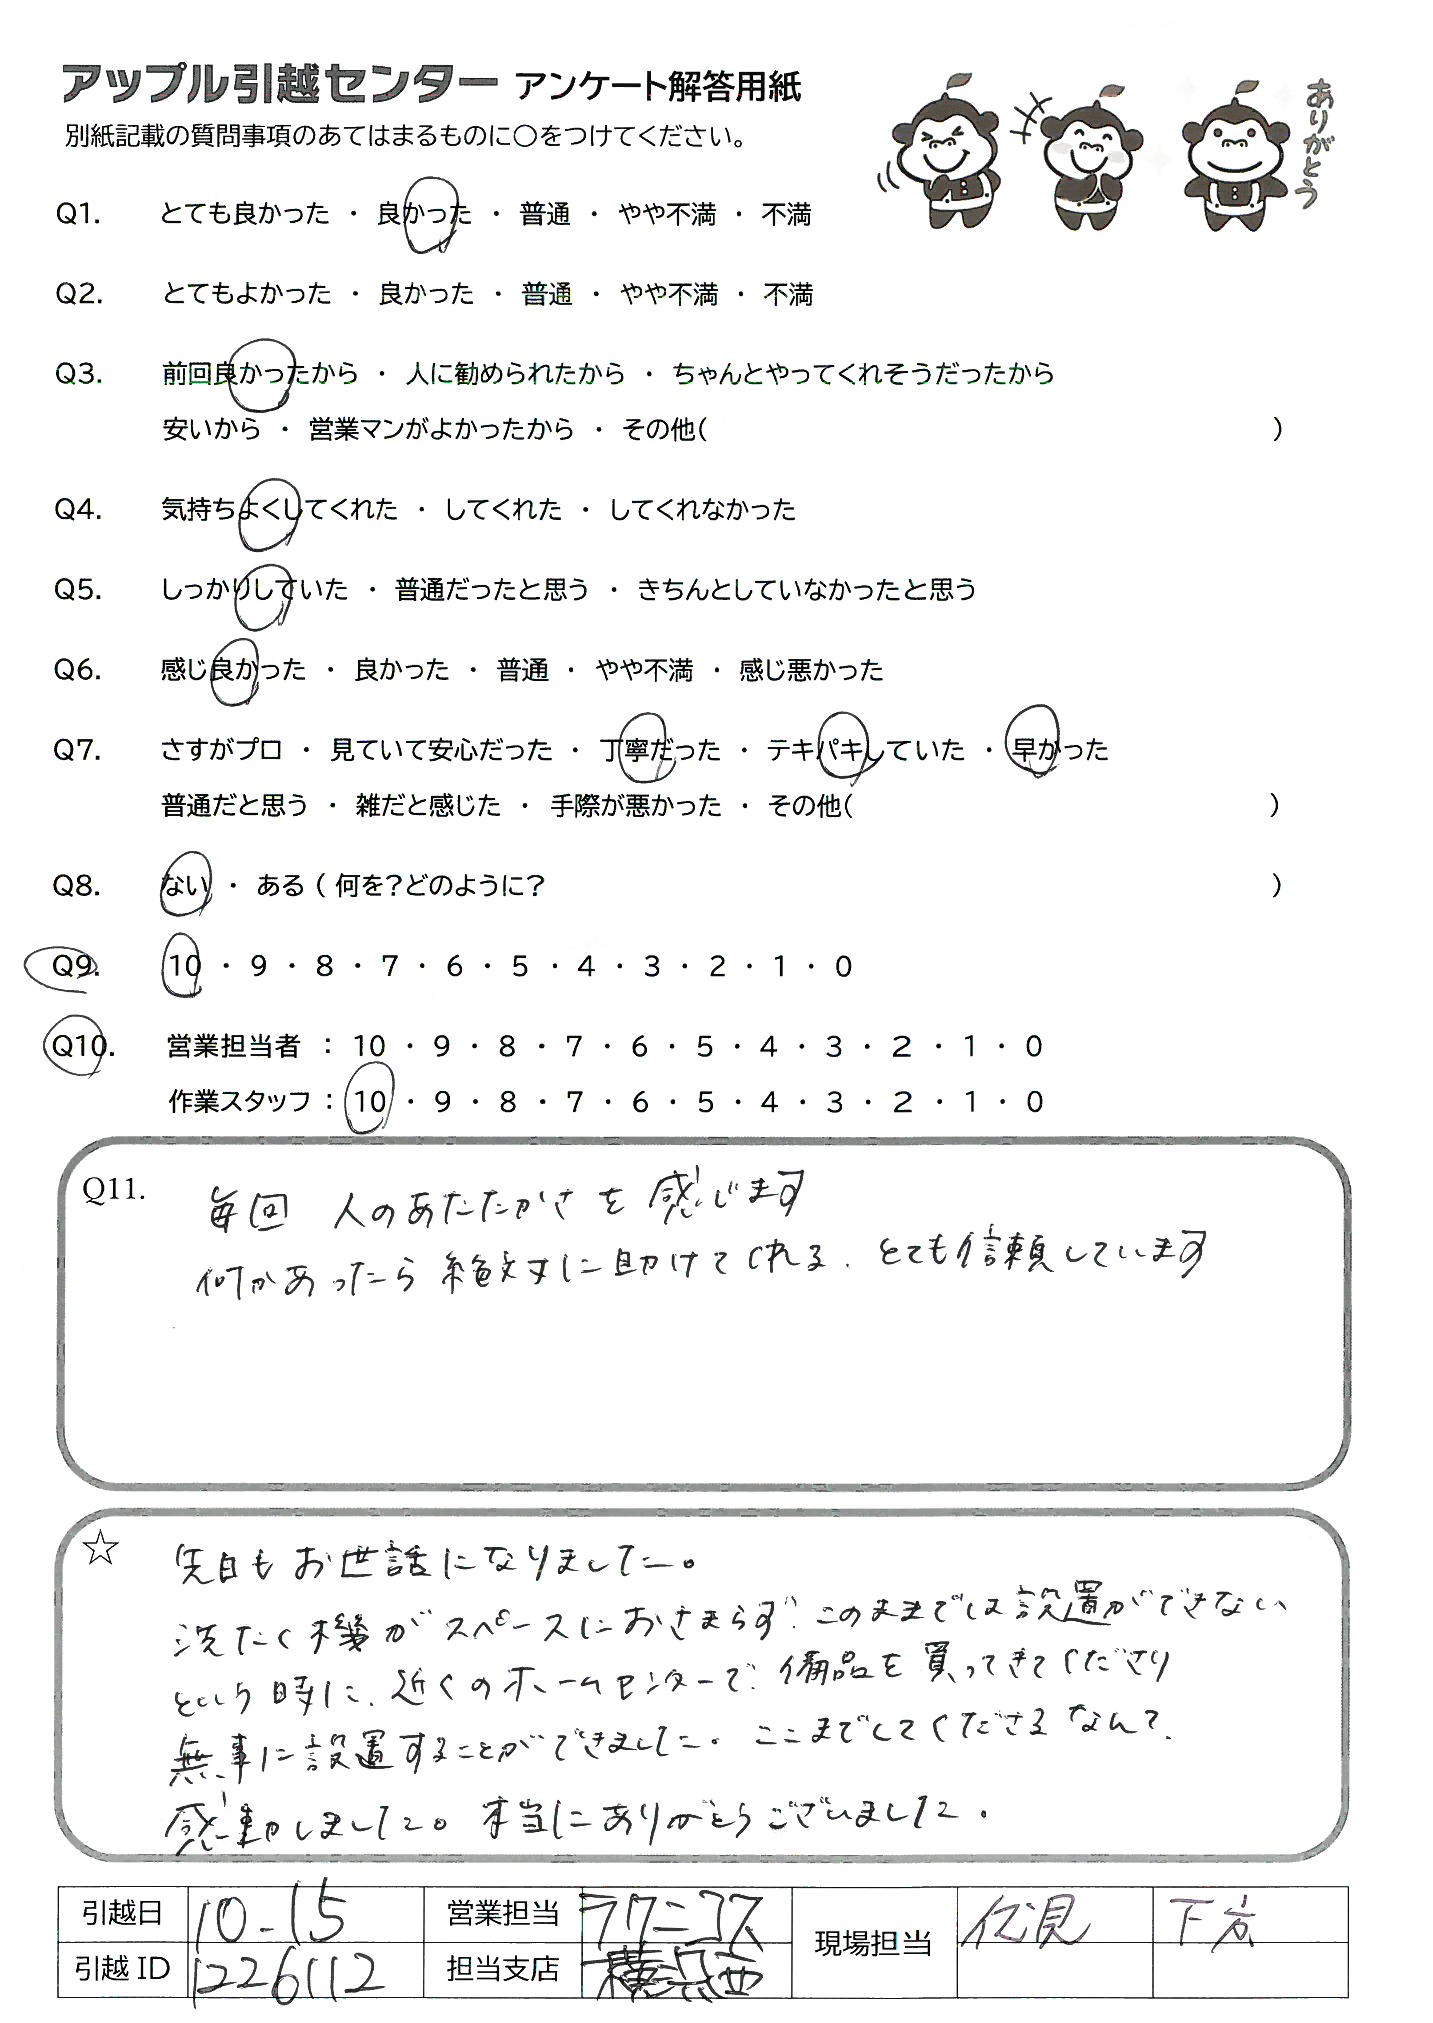 アップル引越センター アンケート解答用紙
別紙記載の質問事項のあてはまるものに○をつけてください。
ありがとう
Q1. とても良かった ・ 良かった ・ 普通 ・ やや不満 ・ 不満
Q2. とてもよかった ・ 良かった ・ 普通 ・ やや不満 ・ 不満
Q3. 前回良かったから ・ 人に勧められたから ・ ちゃんとやってくれそうだったから
安いから ・ 営業マンがよかったから ・ その他( )
Q4. 気持ちよくしてくれた ・ してくれた ・ してくれなかった
Q5. しっかりしていた ・ 普通だったと思う ・ きちんとしていなかったと思う
Q6. 感じ良かった ・ 良かった ・ 普通 ・ やや不満 ・ 感じ悪かった
Q7. さすがプロ ・ 見ていて安心だった ・ 丁寧だった ・ テキパキしていた ・ 早かった
普通だと思う ・ 雑だと感じた ・ 手際が悪かった ・ その他( )
Q8. ない ・ ある ( 何を?どのように? )
Q9. 10 ・ 9 ・ 8 ・ 7 ・ 6 ・ 5 ・ 4 ・ 3 ・ 2 ・ 1 ・ 0
Q10. 営業担当者 : 10 ・ 9 ・ 8 ・ 7 ・ 6 ・ 5 ・ 4 ・ 3 ・ 2 ・ 1 ・ 0
作業スタッフ : 10 ・ 9 ・ 8 ・ 7 ・ 6 ・ 5 ・ 4 ・ 3 ・ 2 ・ 1 ・ 0
Q11. 毎回 人のあたたかさを感じます
何かあったら絶対に助けてくれる、とても信頼しています
☆ 先日もお世話になりました。
洗たく機がスペースにおさまらず、このままでは設置ができない
という時に、近くのホームセンターで、備品を買ってきてくださり
無事に設置することができました。ここまでしてくださるなんて、
感動しました。本当にありがとうございました。
引越日 10-15 営業担当 ラクニコス 現場担当 伏見 下方
引越ID 1226112 担当支店 横浜西